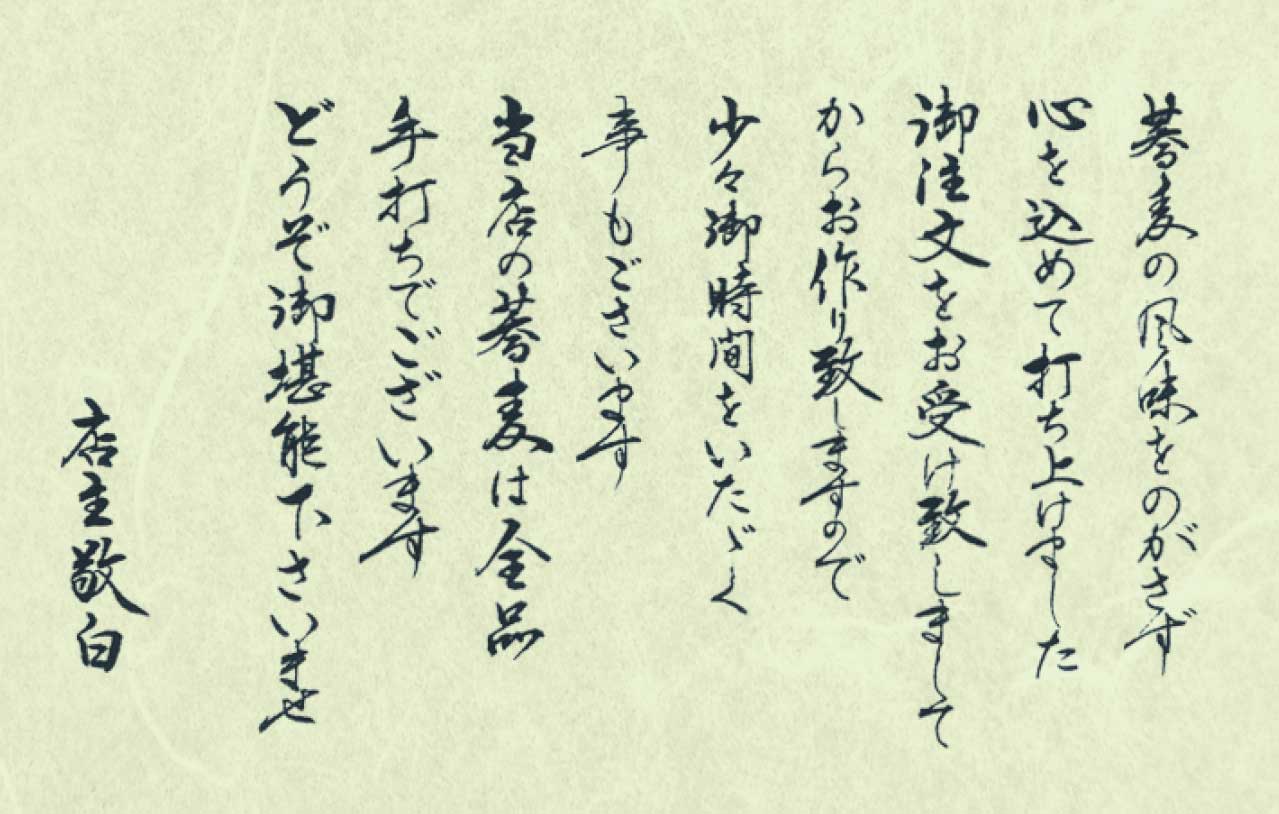 蕎麦の風味をのがさず
心を込めて打ち上げました
御注文をお受け致しまして
からお作り致しますので
少々御時間をいたゞく
事もございます
当店の蕎麦は全品
手打ちでございます
どうぞ御堪能下さいませ
店主敬白